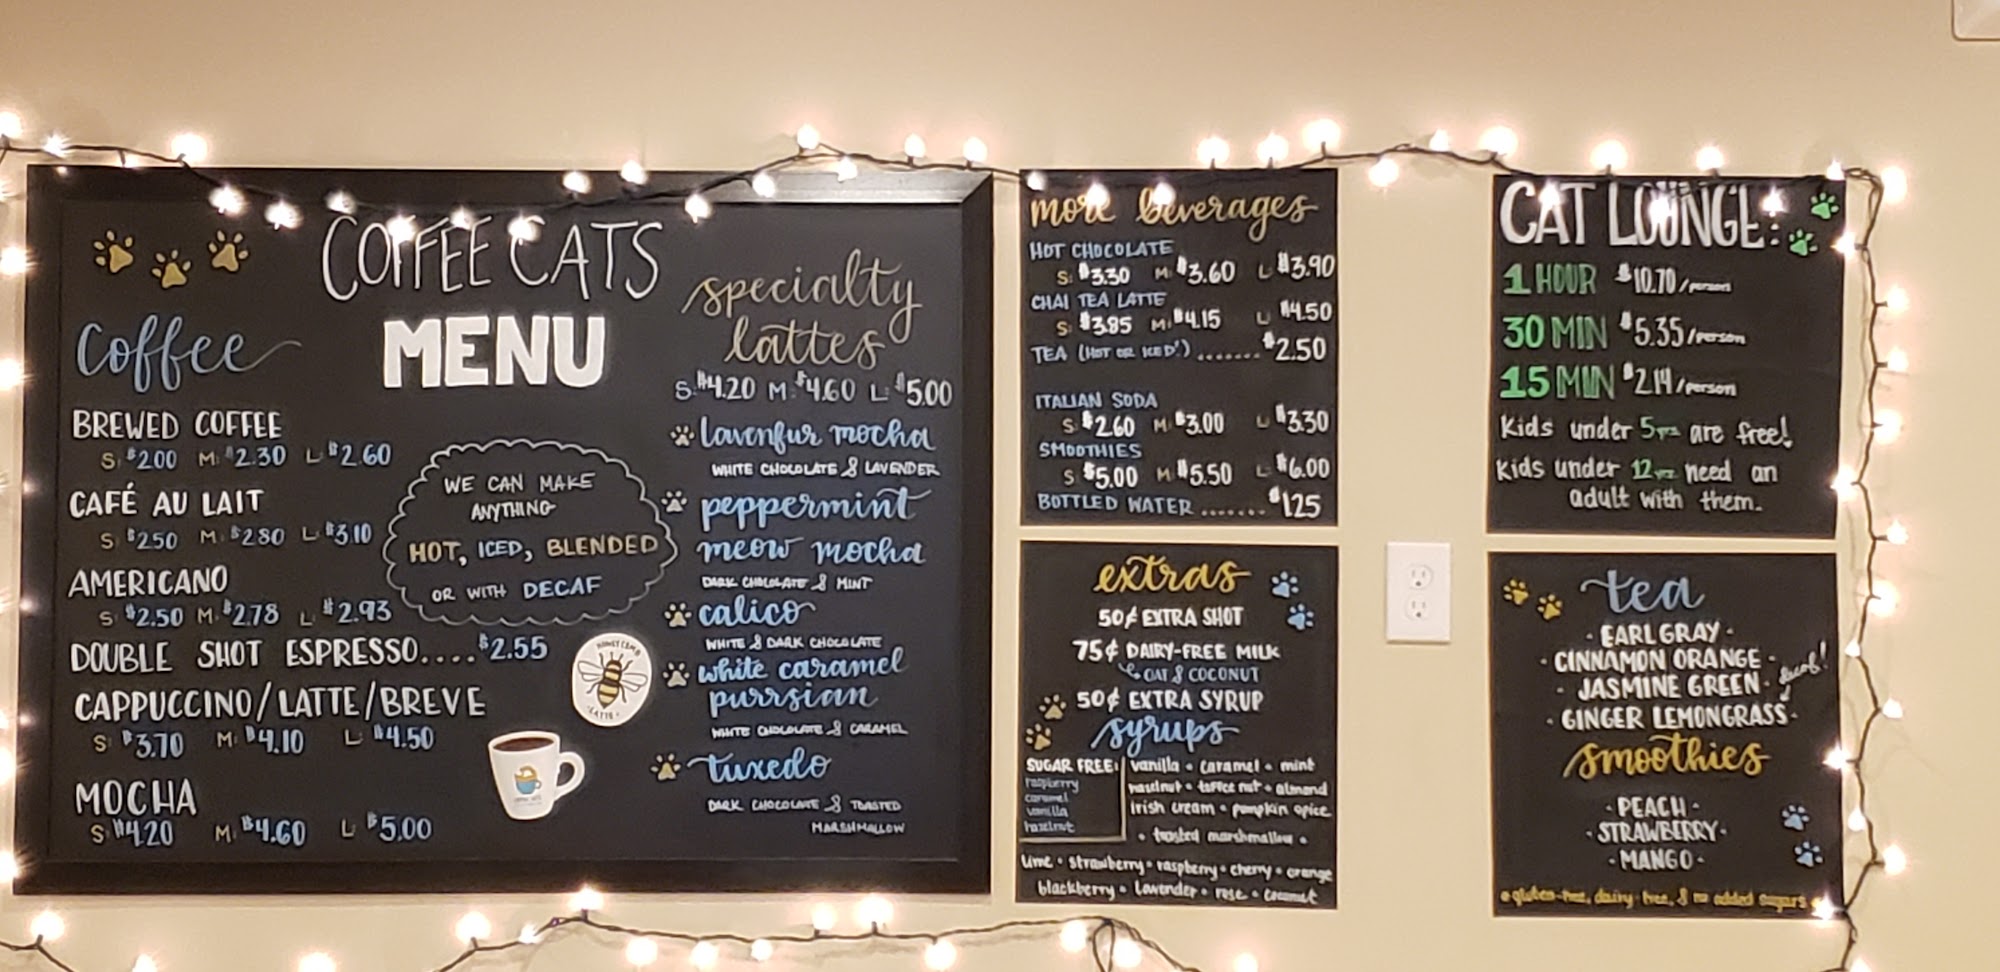 COFFEE CATS
MENU
coffee
BREWED COFFEE
S: $2.00 M: $2.30 L: $2.60
CAFÉ AU LAIT
S: $2.50 M: $2.80 L: $3.10
AMERICANO
S: $2.50 M: $2.78 L: $2.93
DOUBLE SHOT ESPRESSO....$2.55
CAPPUCCINO/LATTE/BREVE
S: $3.70 M: $4.10 L: $4.50
MOCHA
S: $4.20 M: $4.60 L: $5.00
WE CAN MAKE
ANYTHING
HOT, ICED, BLENDED
OR WITH DECAF
HONEYCOMB
LATTE
specialty
lattes
S: $4.20 M: $4.60 L: $5.00
lavenfur mocha
WHITE CHOCOLATE & LAVENDER
peppermint
meow mocha
DARK CHOCOLATE & MINT
calico
WHITE & DARK CHOCOLATE
white caramel
purrsian
WHITE CHOCOLATE & CARAMEL
tuxedo
DARK CHOCOLATE & TOASTED
MARSHMALLOW
more beverages
HOT CHOCOLATE
S: $3.30 M: $3.60 L: $3.90
CHAI TEA LATTE
S: $3.85 M: $4.15 L: $4.50
TEA (HOT OR ICED!).......$2.50
ITALIAN SODA
S: $2.60 M: $3.00 L: $3.30
SMOOTHIES
S: $5.00 M: $5.50 L: $6.00
BOTTLED WATER.......$1.25
extras
50¢ EXTRA SHOT
75¢ DAIRY-FREE MILK
OAT & COCONUT
50¢ EXTRA SYRUP
syrups
SUGAR FREE:
raspberry
caramel
vanilla
hazelnut
vanilla • caramel • mint
hazelnut • toffee nut • almond
irish cream • pumpkin spice
• toasted marshmallow •
lime • strawberry • raspberry • cherry • orange
blackberry • lavender • rose • coconut
CAT LOUNGE:
1 HOUR $10.70/person
30 MIN $5.35/person
15 MIN $2.14/person
Kids under 5yrs are free!
Kids under 12yrs need an
adult with them.
tea
· EARL GRAY ·
· CINNAMON ORANGE ·
· JASMINE GREEN ·
· GINGER LEMONGRASS ·
decaf!
smoothies
· PEACH ·
· STRAWBERRY ·
· MANGO ·
• gluten-free, dairy-free, & no added sugars •